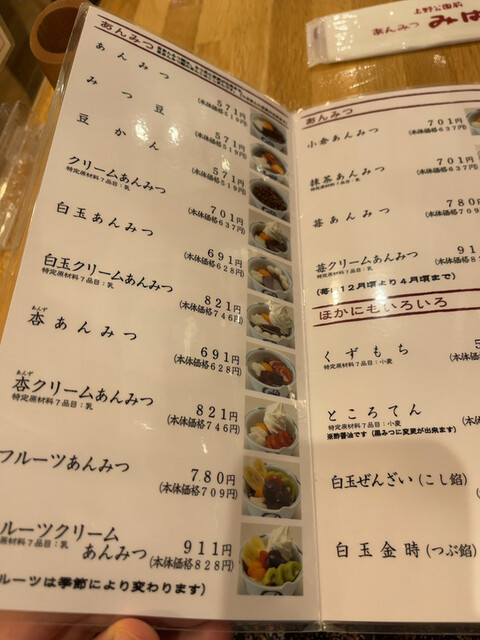 上野公園前
あんみつ みは
あんみつ
あんみつ
571円
(本体価格519円)
みつ豆
571円
(本体価格519円)
豆かん
571円
(本体価格519円)
クリームあんみつ
特定原材料7品目:乳
701円
(本体価格637円)
白玉あんみつ
691円
(本体価格628円)
白玉クリームあんみつ
特定原材料7品目:乳
821円
(本体価格746円)
あんず
杏あんみつ
691円
(本体価格628円)
あんず
杏クリームあんみつ
特定原材料7品目:乳
821円
(本体価格746円)
フルーツあんみつ
780円
(本体価格709円)
ルーツクリーム
あんみつ
特定原材料7品目:乳
911円
(本体価格828円)
ルーツは季節により変わります)
あんみつ
小倉あんみつ
701円
(本体価格637円)
抹茶あんみつ
特定原材料7品目:乳
701円
(本体価格637円)
苺あんみつ
780
(本体価格709
苺クリームあんみつ
特定原材料7品目:乳
91
(本体価格8
(苺は12月頃より4月頃まで)
ほかにもいろいろ
くずもち
特定原材料7品目:小麦
5
(本体
ところてん
特定原材料7品目:小麦
※酢醤油です (黒みつに変更が出来ます)
(本
白玉ぜんざい(こし餡)
白玉金時(つぶ餡)